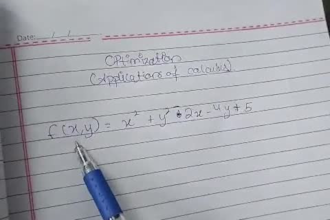 Date: / /
Optimization
(Applications of calculus)
f(x,y) = x² + y² + 2x - 4y + 5